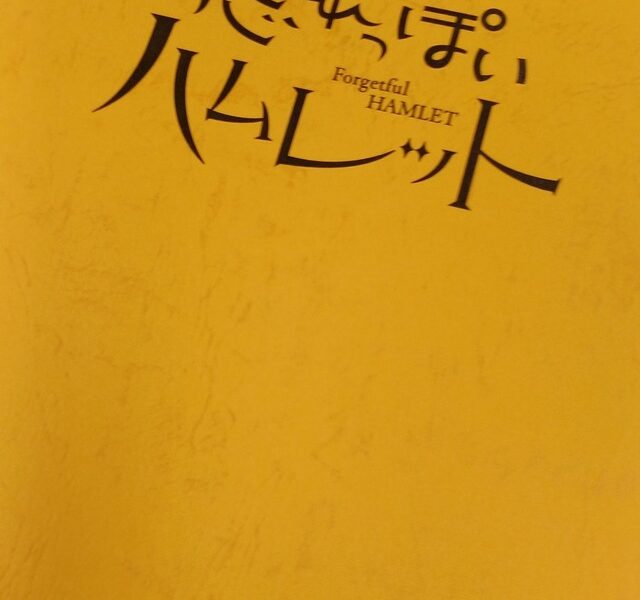 忘れっぽい
Forgetful
HAMLET
ハムレット